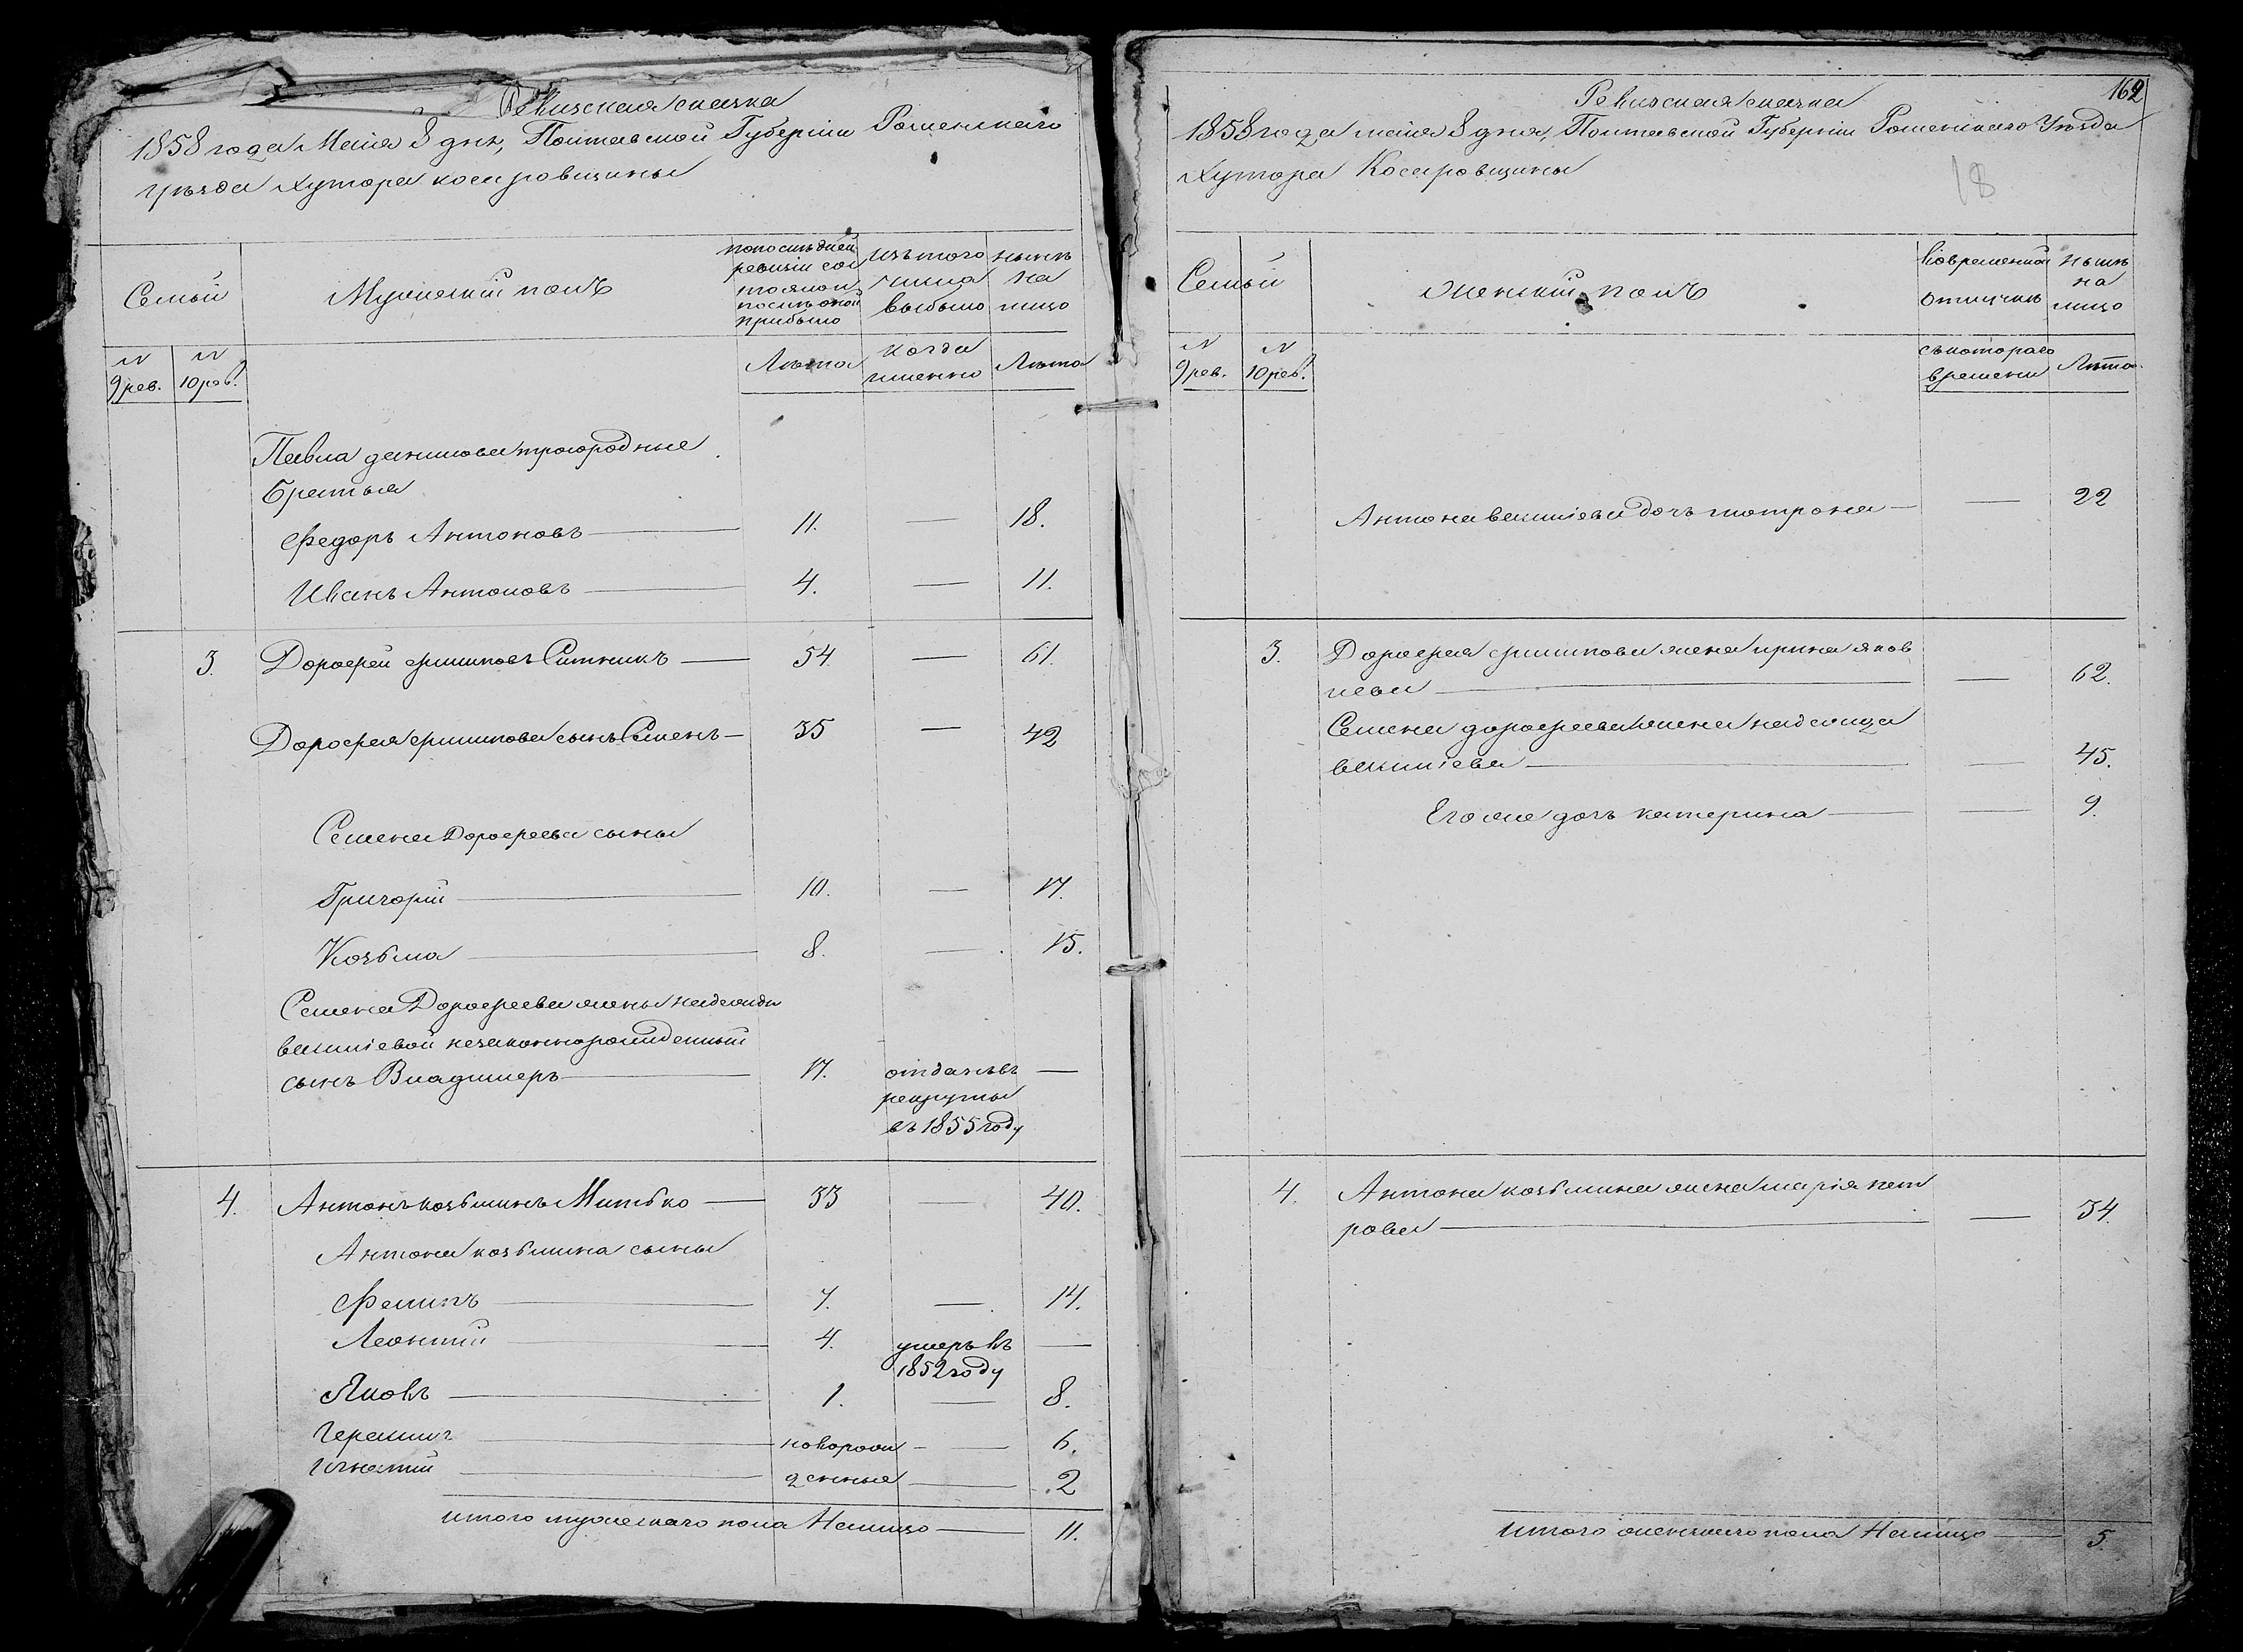 Ревизская сказка
1858 года Маія 8 дня, Полтавской Губерніи Роменскаго
уезда Хутора косаровщины
Семьи
Мужескій полъ
по последней
ревизіи сос
тоялои
после оной
прибыло
изътого
числа
выбыло
ныне
на
лицо
N
9 рев.
N
10 рев.
Лета
когда
именно
Лета
Павла данилова троюродные
братья
Федоръ Антоновъ — 11. — 18.
Иванъ Антоновъ — 4. — 11.
3. Дорофей филиповъ Ситникъ — 54. — 61.
Дорофея филипова сынъ Семенъ — 35 — 42
Семена Дорофеева сыны
Григорій — 10. — 17.
Козьма — 8. — 15.
Семена Дорофеева жены надежды
василіевой незаконнорожденный
сынъ Владимеръ — 17. отданъ въ —
рекруты
въ 1855 году
4. Антонъ козьминъ Митько — 33 — 40.
Антона козьмина сыны
Филипъ — 7. — 14.
Леонтий — 4. умеръ въ —
1852 году
Яковъ — 1. — 8.
Герасимъ — коворож — 6.
Игнатий — денные — 2
итого мужескаго пола Налицо — 11.
Ревизская сказка
162
1858 года маія 8 дня, Полтавской Губерніи Роменскаго Уезда
Хутора Косаровщины
18
Семьи
женскій полъ
Вовременной
отлучке
ныне
на
лицо
N
9 рев.
N
10 рев.
скотораго
времени
Лета
Антона василіева дочь мотрона — — 22
3. Дорофея филипова жена ирина яков
лева — — 62.
Семена дорофеева жена надежда
василіева — — 45.
Его же дочь катерина — — 9.
4. Антона козьмина жена марія пет
рова — — 34.
итого женскаго пола Налицо — 5.